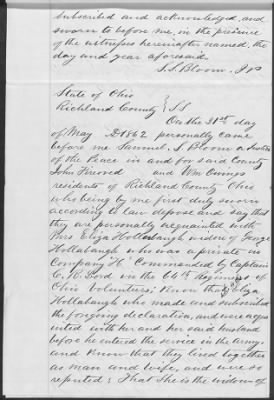 subscribed and acknowledged, and
sworn to before me, in the presence
of the witnesses hereinafter named, the
day and year aforesaid.
S. S. Bloom, J P
State of Ohio
Richland County } SS
On the 31st day
of May A D 1862 personally came
before me Samuel S. Bloom a Justice
of the Peace in and for said County
John and Wm
residents of Richland County Ohio
who being by me first duly sworn
according to law depose and say that
they are personally acquainted with
Mrs Eliza Hollabaugh widow of George
Hollabaugh who was a private in
Company "H" Commanded by Captain
in the 64th Regiment of
Ohio Volunteers; Know that Eliza
Hollabaugh who made and subscribed
the forgoing declaration, and were acqua
inted with her and her said husband
before he entered the service in the army,
and know that they lived together
as man and wife, and were so
reputed; That she is the widow of